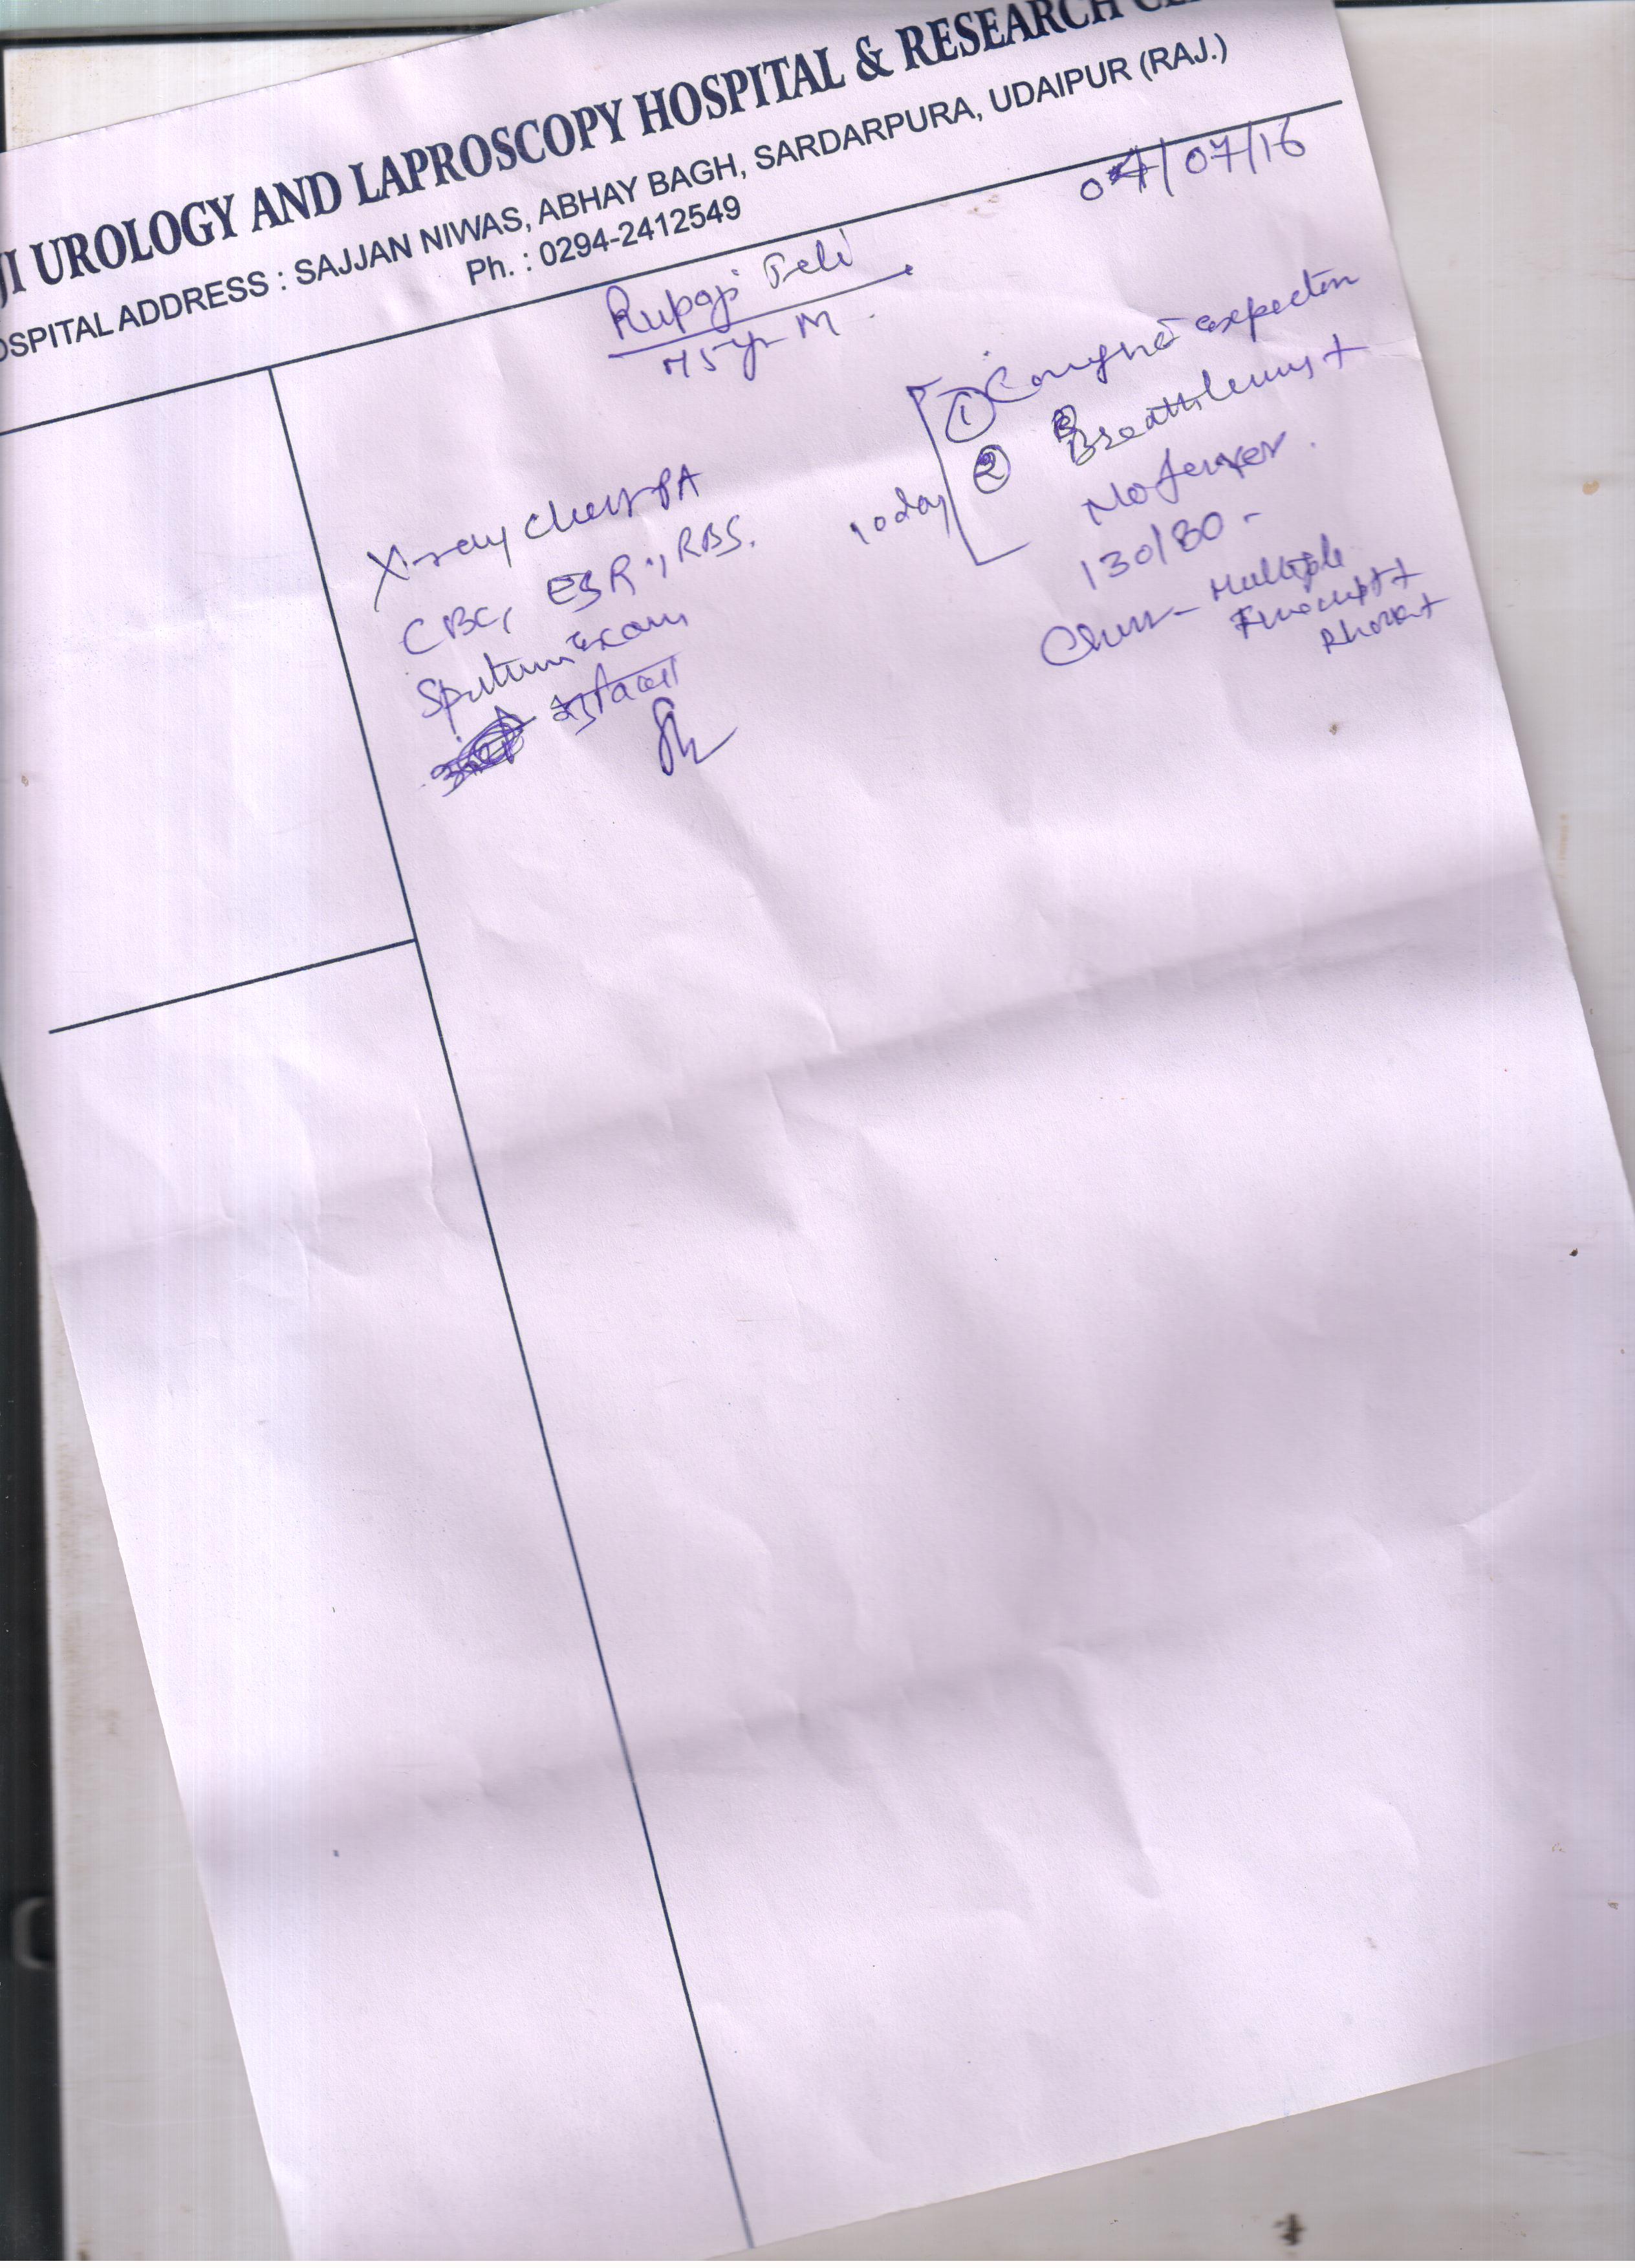 JI UROLOGY AND LAPROSCOPY HOSPITAL & RESEARCH
OSPITAL ADDRESS : SAJJAN NIWAS, ABHAY BAGH, SARDARPURA, UDAIPUR (RAJ.)
Ph. : 0294-2412549
04/07/16
Rupaji Teli
75 yr M
X-ray chest PA
CBC, ESR, RBS.
Sputum exam
10 day
① Cough c̄ expecton
② Breathlessness +
No fever.
130/80 -
Chest - Multiple